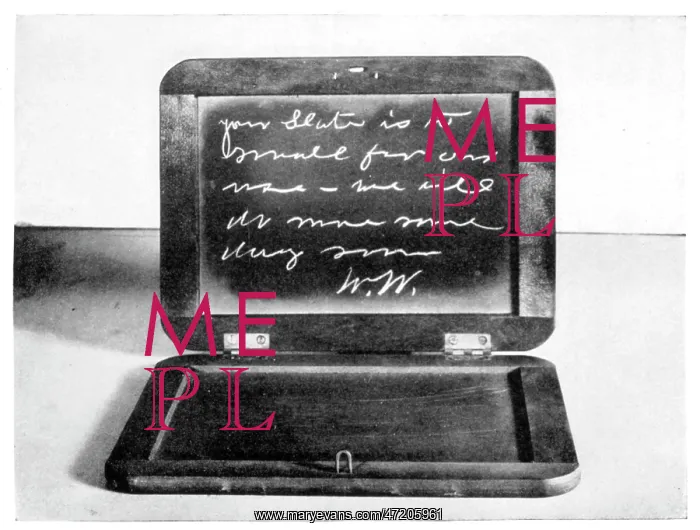 your Slate is
small for
more – we will
do more some
day soon
W.W.
ME
PL
ME
PL
www.maryevans.com/47205961